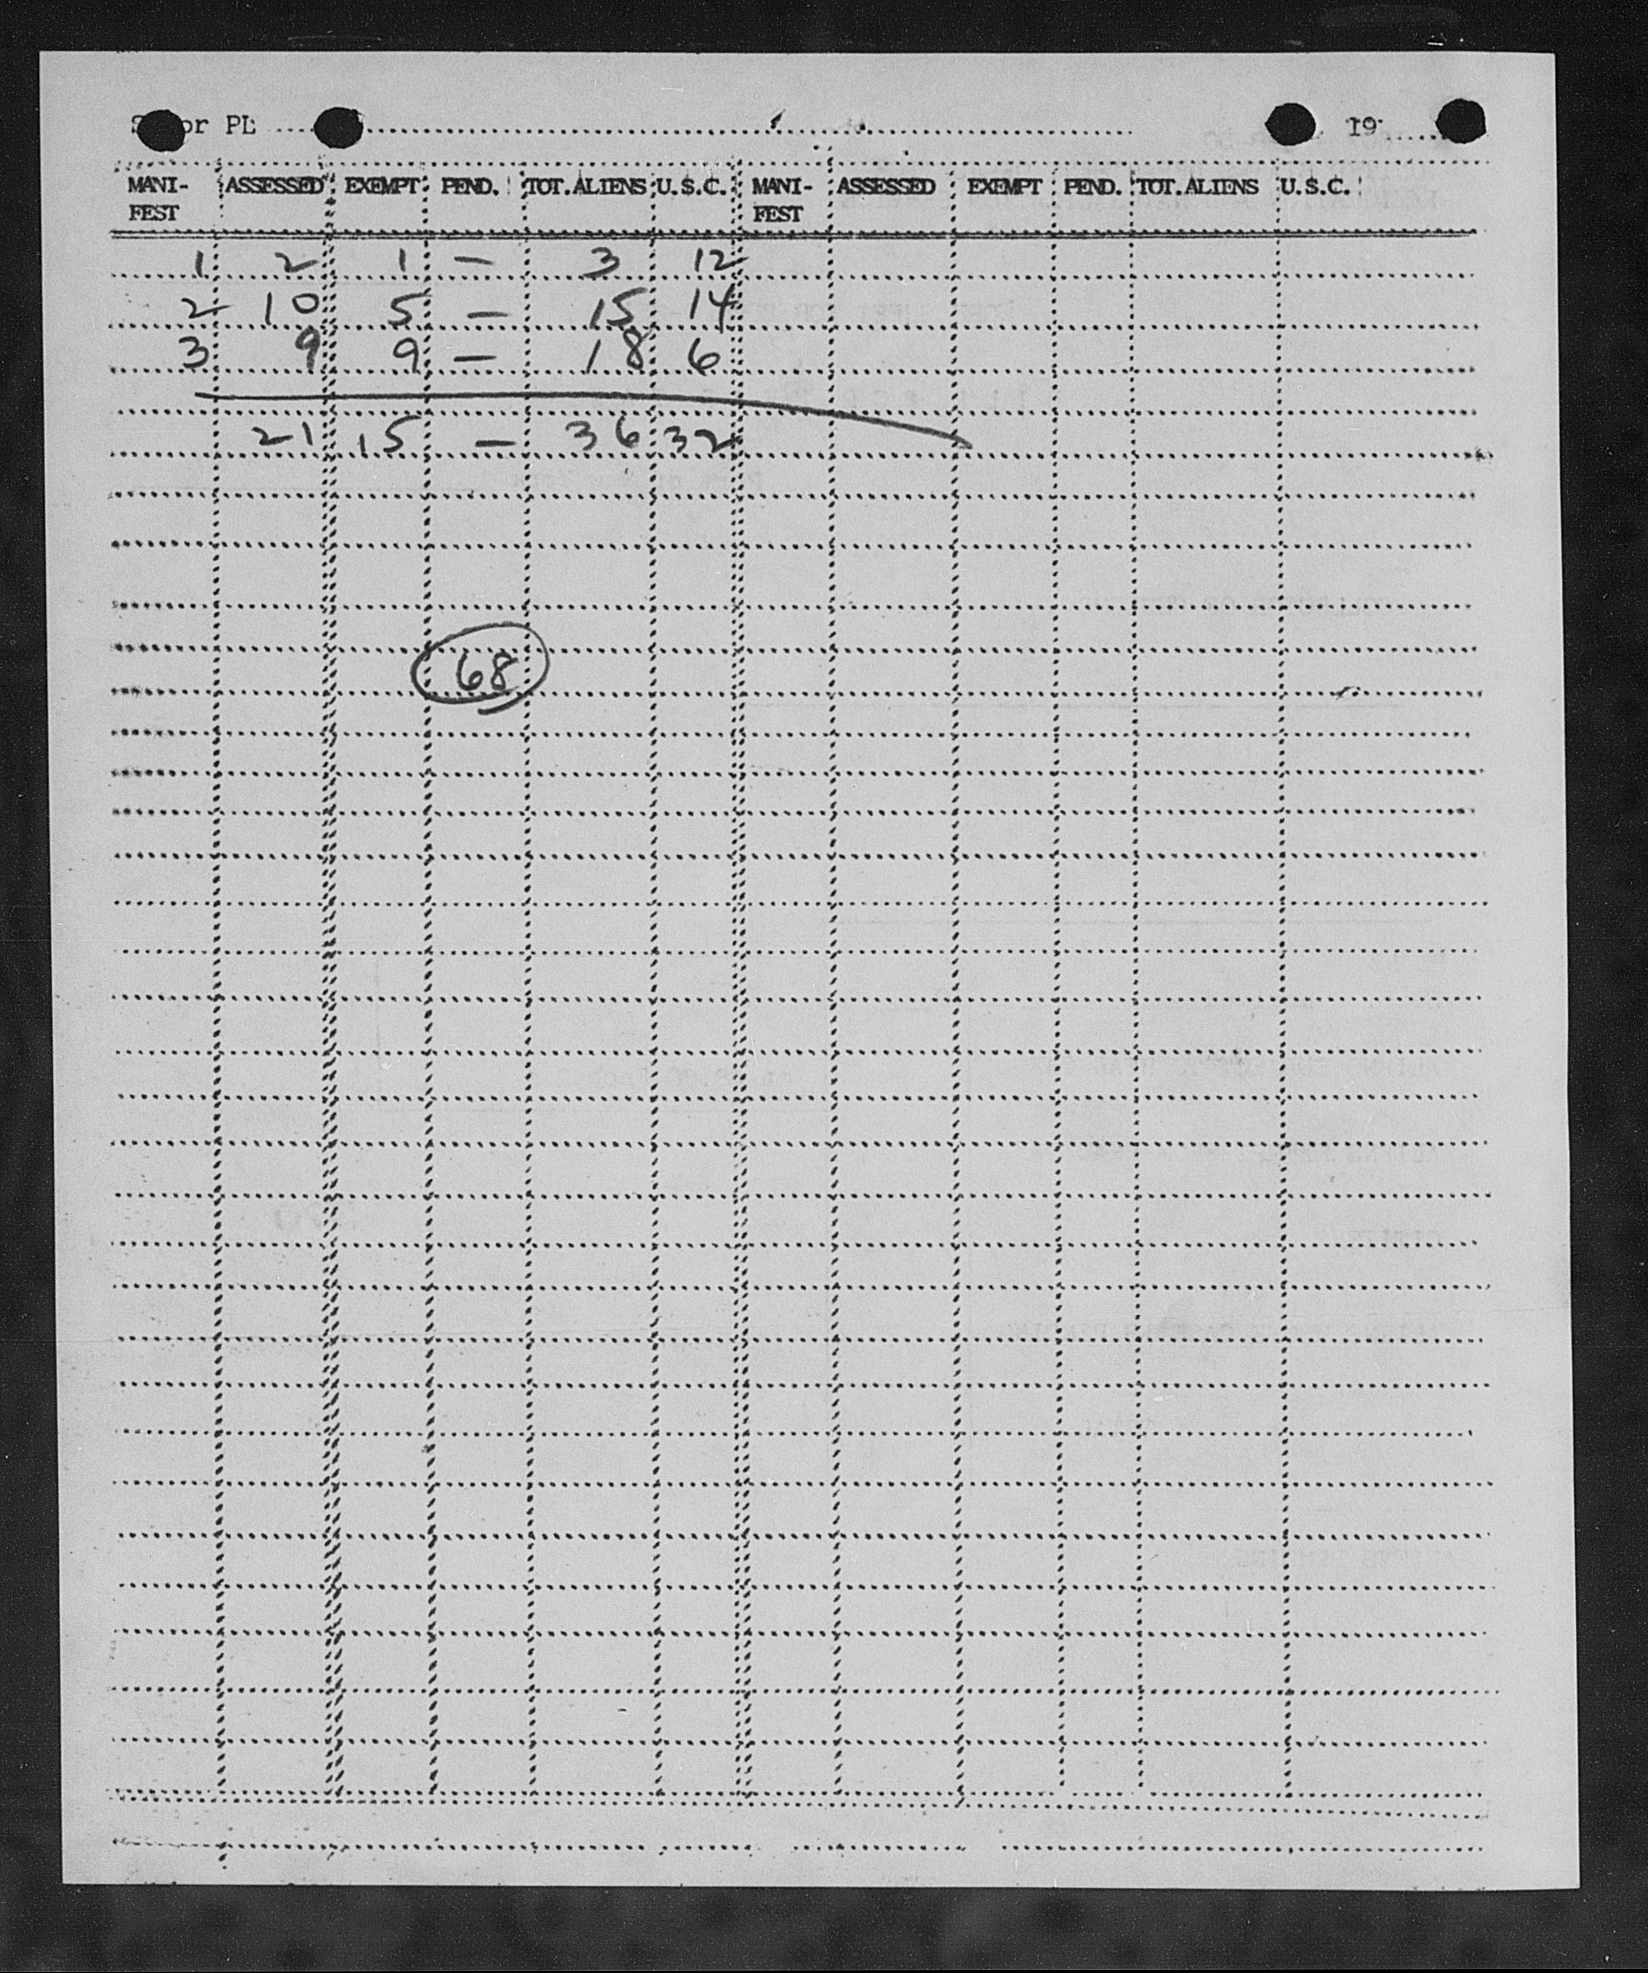 or PL 19
MANI- ASSESSED EXEMPT PEND. TOT. ALIENS U.S.C. MANI- ASSESSED EXEMPT PEND. TOT. ALIENS U.S.C.
FEST FEST
1 2 1 — 3 12
2 10 5 — 15 14
3 9 9 — 18 6
21 15 — 36 32
68